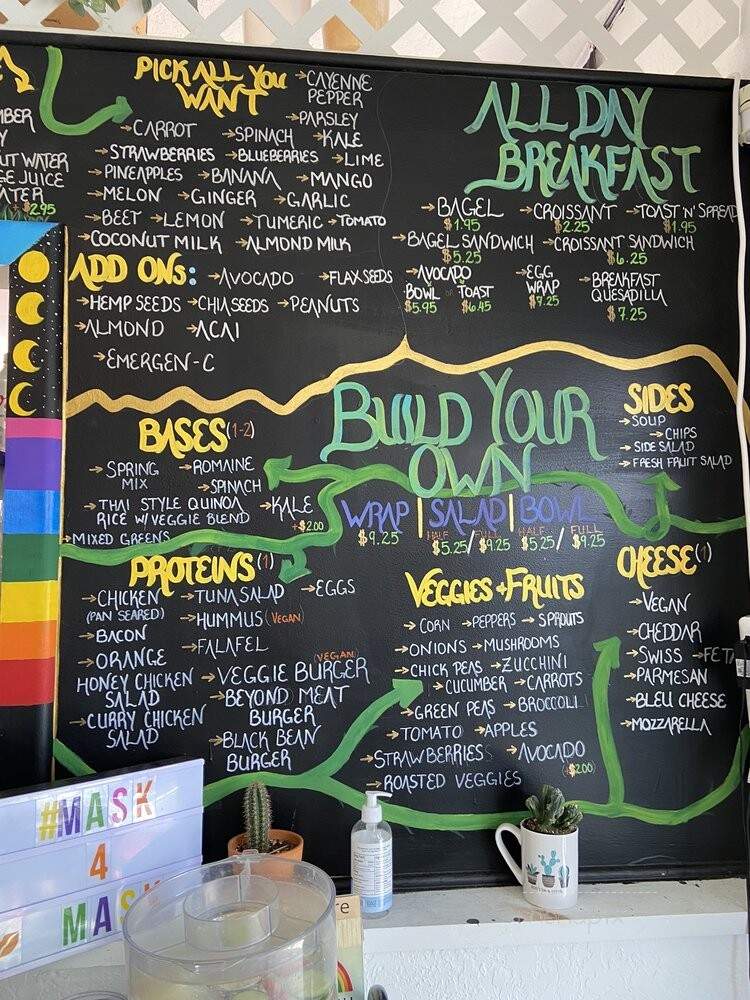 MBER
Y
UT WATER
GE JUICE
ATER
+2.95
PICK ALL YOU
WANT
→CAYENNE
PEPPER
→PARSLEY
→CARROT →SPINACH →KALE
→STRAWBERRIES →BLUEBERRIES →LIME
→PINEAPPLES →BANANA →MANGO
→MELON →GINGER →GARLIC
→BEET →LEMON →TUMERIC →TOMATO
→COCONUT MILK →ALMOND MILK
ADD ONs: →AVOCADO →FLAXSEEDS
→HEMP SEEDS →CHIA SEEDS →PEANUTS
→ALMOND →ACAI
→EMERGEN-C
ALL DAY
BREAKFAST
→BAGEL →CROISSANT →TOAST 'N' SPREAD
$1.95 $2.25 $1.95
→BAGEL SANDWICH →CROISSANT SANDWICH
$5.25 $6.25
→AVOCADO →EGG →BREAKFAST
BOWL OR TOAST WRAP QUESADILLA
$5.95 $6.45 $7.25 $7.25
BUILD YOUR
OWN
WRAP | SALAD | BOWL
$9.25 HALF $5.25 / FULL $9.25 HALF $5.25 / FULL $9.25
SIDES
→SOUP
→CHIPS
→SIDE SALAD
→FRESH FRUIT SALAD
BASES (1-2)
→SPRING MIX →ROMAINE
→SPINACH
→THAI STYLE QUINOA →KALE
RICE W/ VEGGIE BLEND +$2.00
→MIXED GREENS
PROTEINS (1)
→CHICKEN →TUNA SALAD →EGGS
(PAN SEARED) →HUMMUS (VEGAN)
→BACON
→FALAFEL
→ORANGE
HONEY CHICKEN
SALAD
→CURRY CHICKEN
SALAD
VEGAN
→VEGGIE BURGER
→BEYOND MEAT
BURGER
→BLACK BEAN
BURGER
VEGGIES + FRUITS
→CORN →PEPPERS →SPROUTS
→ONIONS →MUSHROOMS
→CHICK PEAS →ZUCCHINI
→CUCUMBER →CARROTS
→GREEN PEAS →BROCCOLI
→TOMATO →APPLES
→STRAWBERRIES →AVOCADO
(+$2.00)
→ROASTED VEGGIES
CHEESE (1)
→VEGAN
→CHEDDAR
→SWISS →FETA
→PARMESAN
→BLEU CHEESE
→MOZZARELLA
#MASK
4
MASK
re